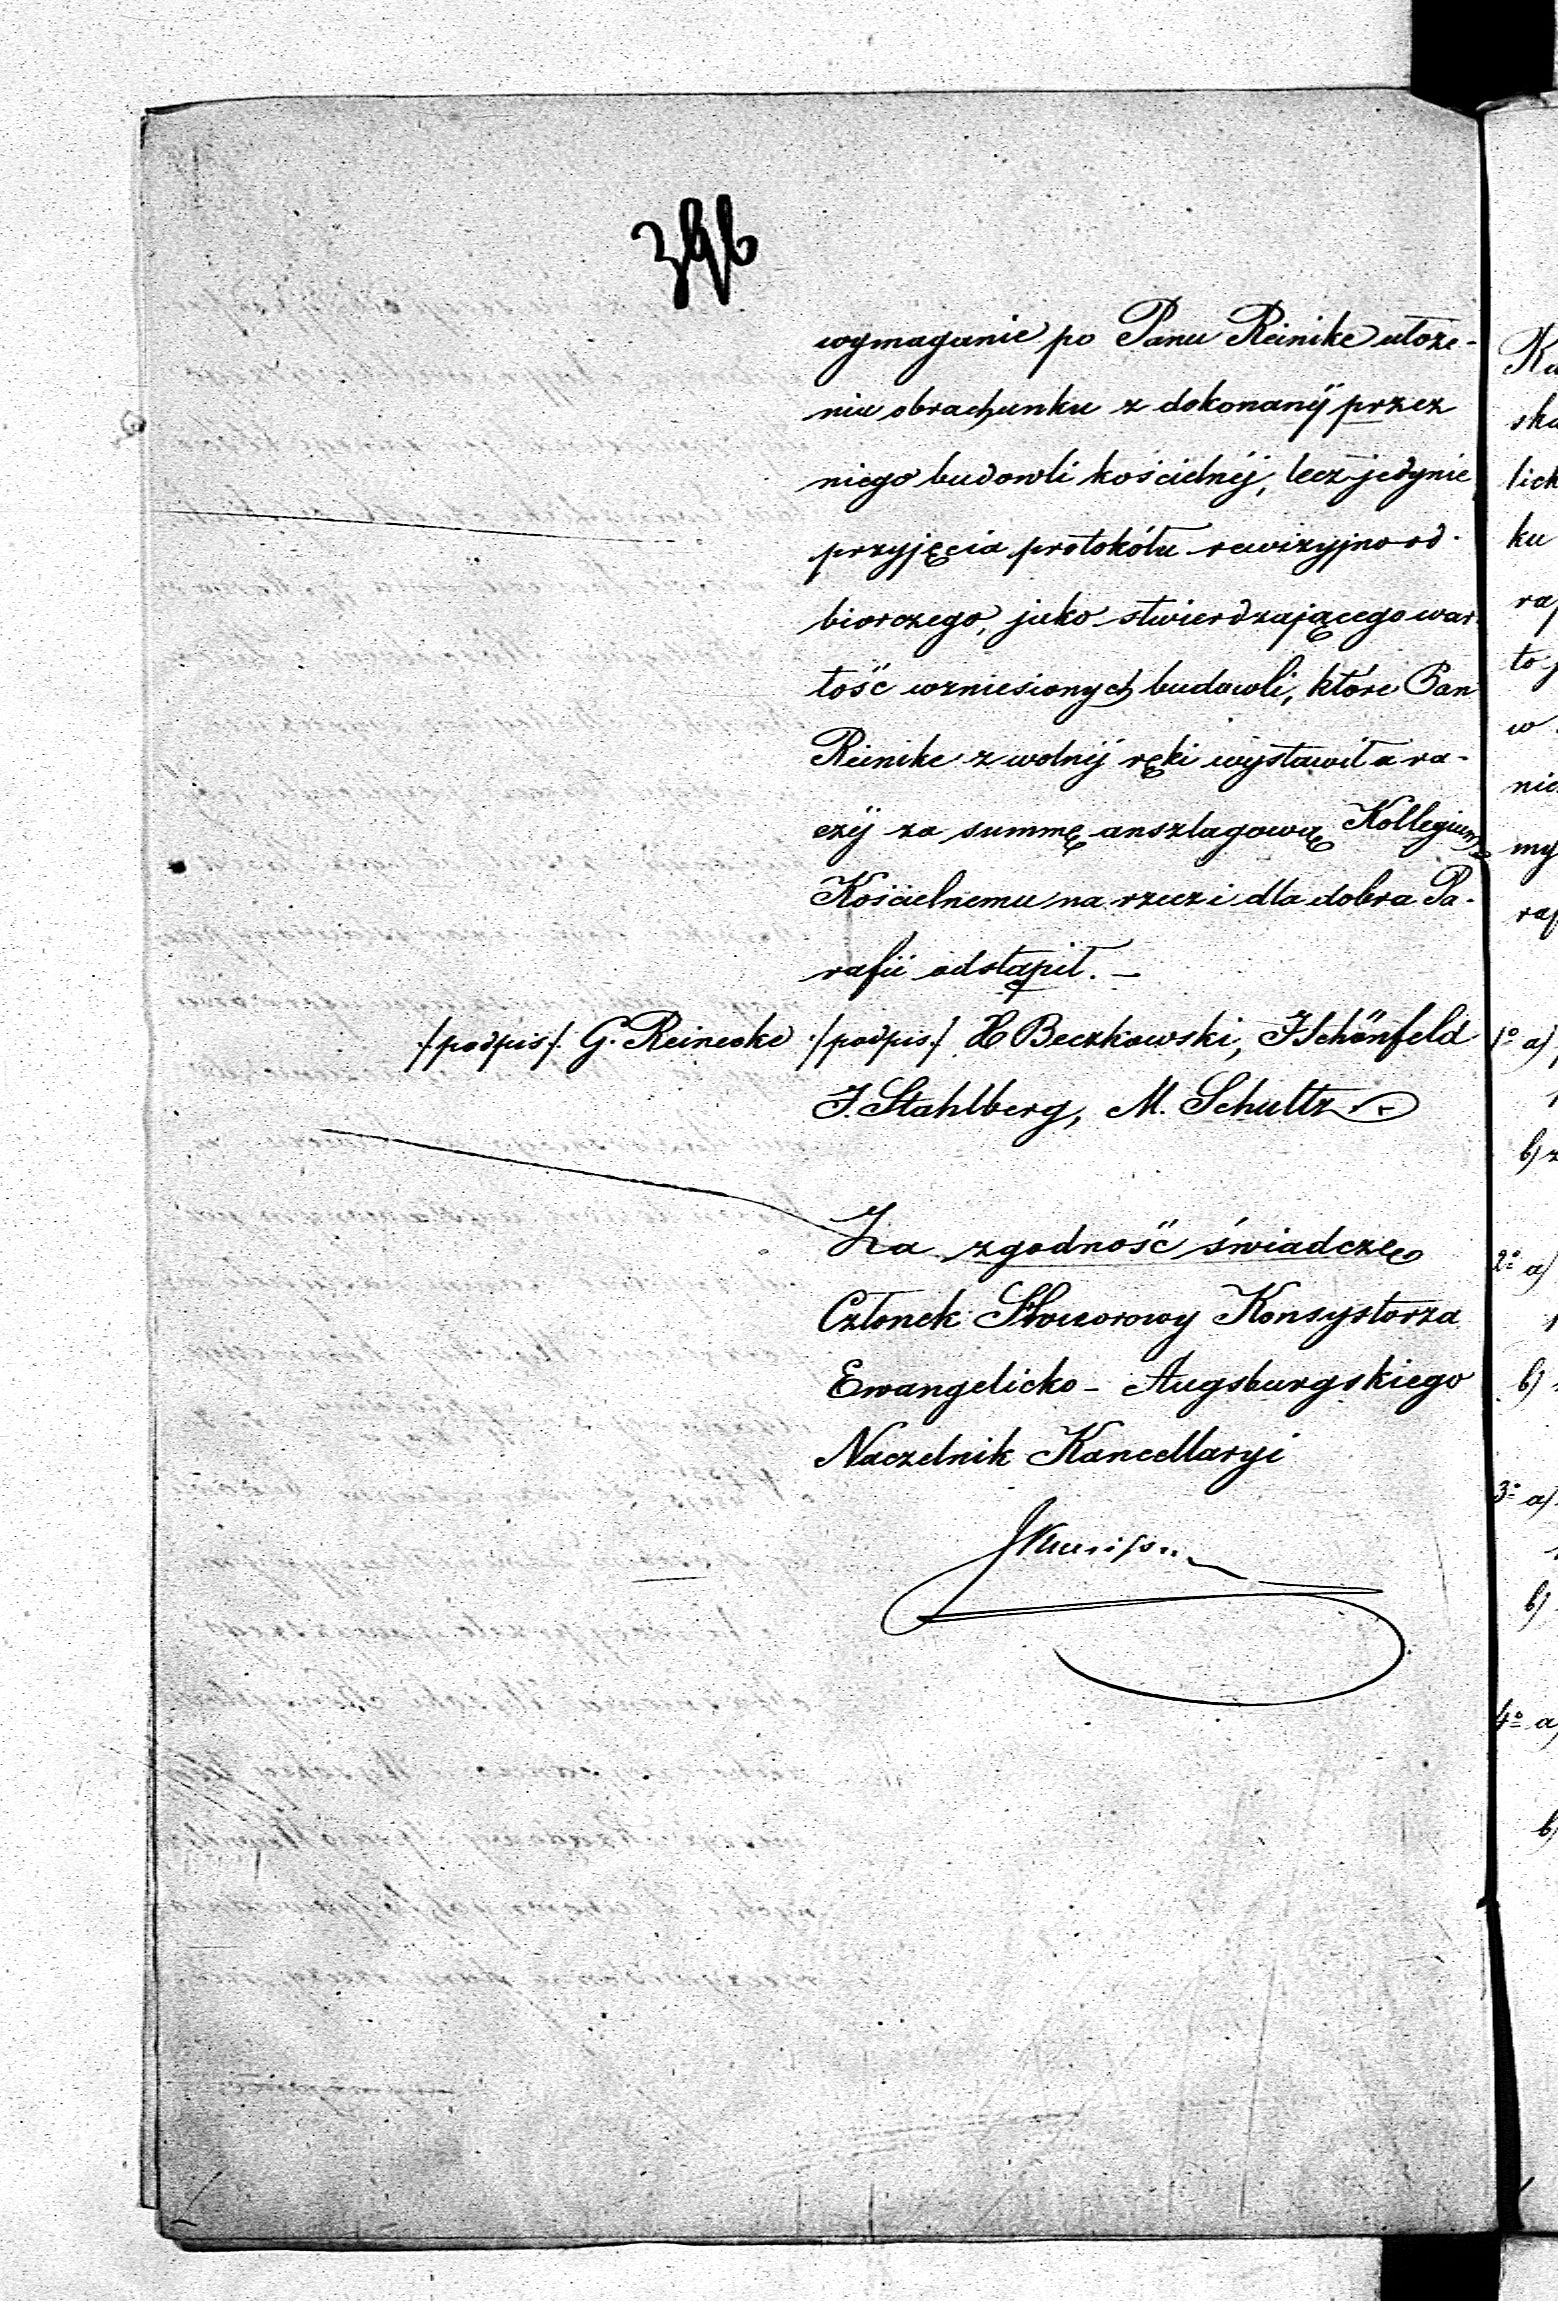 396
wymaganie po Panu Reinike ułoże-
nia obrachunku z dokonanéj przez
niego budowli kościelnéj, lecz jedynie
przyjęcia protokółu rewizyjno od-
biorczego, jako stwierdzającego war-
tość wzniesionych budowli, które Pan
Reinike z wolnéj ręki wystawił a ra-
czéj za summę anszlagową Kollegium
Kościelnemu na rzecz i dla dobra Pa-
rafii odstąpił. —
/podpis/ G. Reinecke /podpis/ H Beczkowski, J Schönfeld
J. Stahlberg, M. Schultz
Za zgodność świadczę
Członek Honorowy Konsystorza
Ewangelicko-Augsburgskiego
Naczelnik Kancellaryi
Ka
ska
lick
ku
rap
to j
w
nie
my
rap
1° a)
b) z
2° a)
b)
3° a)
b)
4° a)
b)